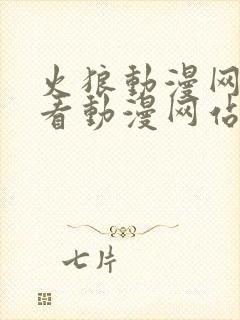 火狼動漫网
看動漫网佔
七片